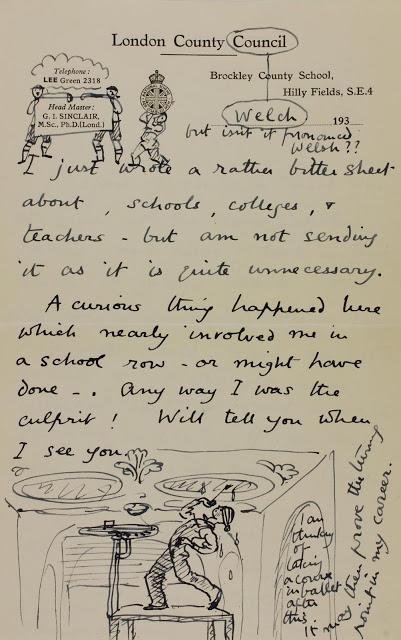 London County Council
Telephone:
LEE Green 2318
Head Master:
G. I. SINCLAIR,
M.Sc., Ph.D.(Lond.)
Brockley County School,
Hilly Fields, S.E.4
Welch
193
but isn't it pronounced
Welsh ??
I just wrote a rather bitter sheet
about, schools, colleges, &
teachers - but am not sending
it as it is quite unnecessary.
A curious thing happened here
which nearly involved me in
a school row - or might have
done - . Any way I was the
culprit! Will tell you when
I see you.
I am
thinking
of
taking
a course
in ballet
after
this.
It may then prove the turning
point in my career.